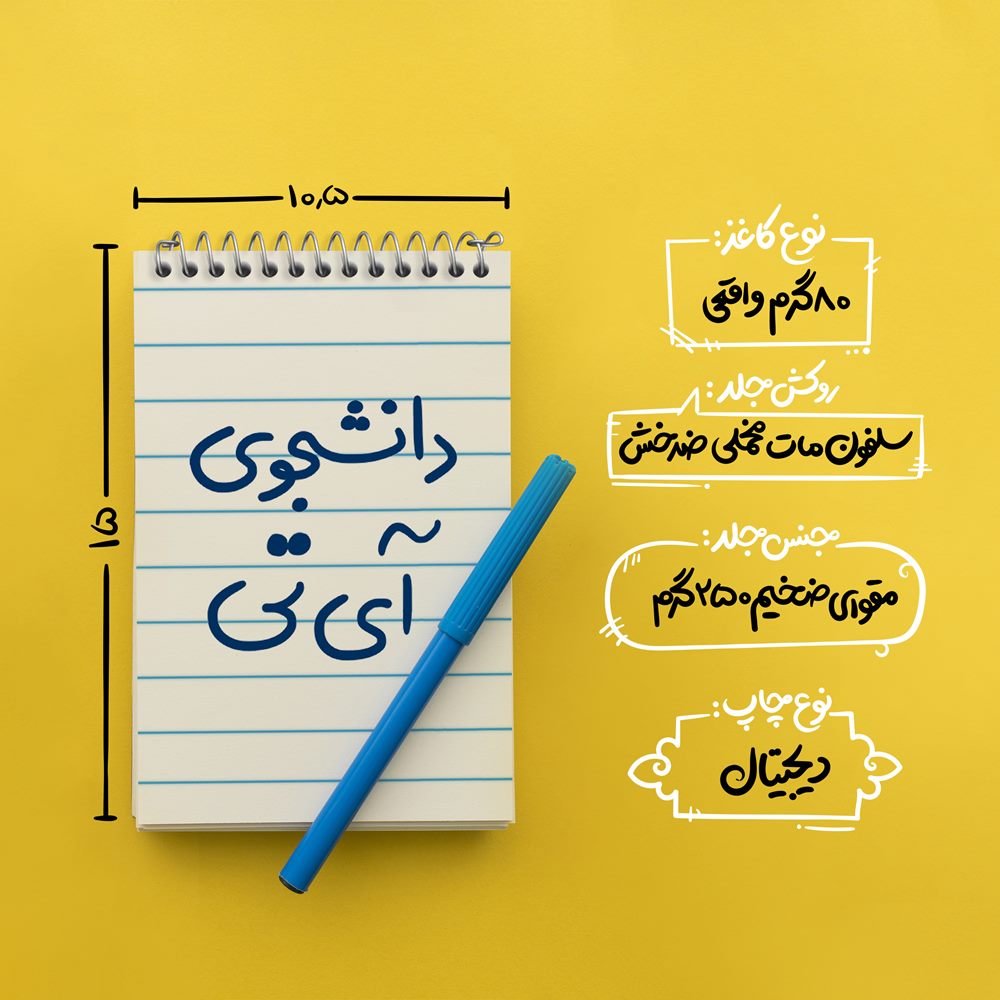 ۱۰٫۵
۱۵
دانشجوی
آی تی
نوع کاغذ:
۸۰گرم واقعی
روکش جلد:
سلفون مات مخملی ضدخش
جنس جلد:
مقوای ضخیم ۲۵۰گرم
نوع چاپ:
دیجیتال